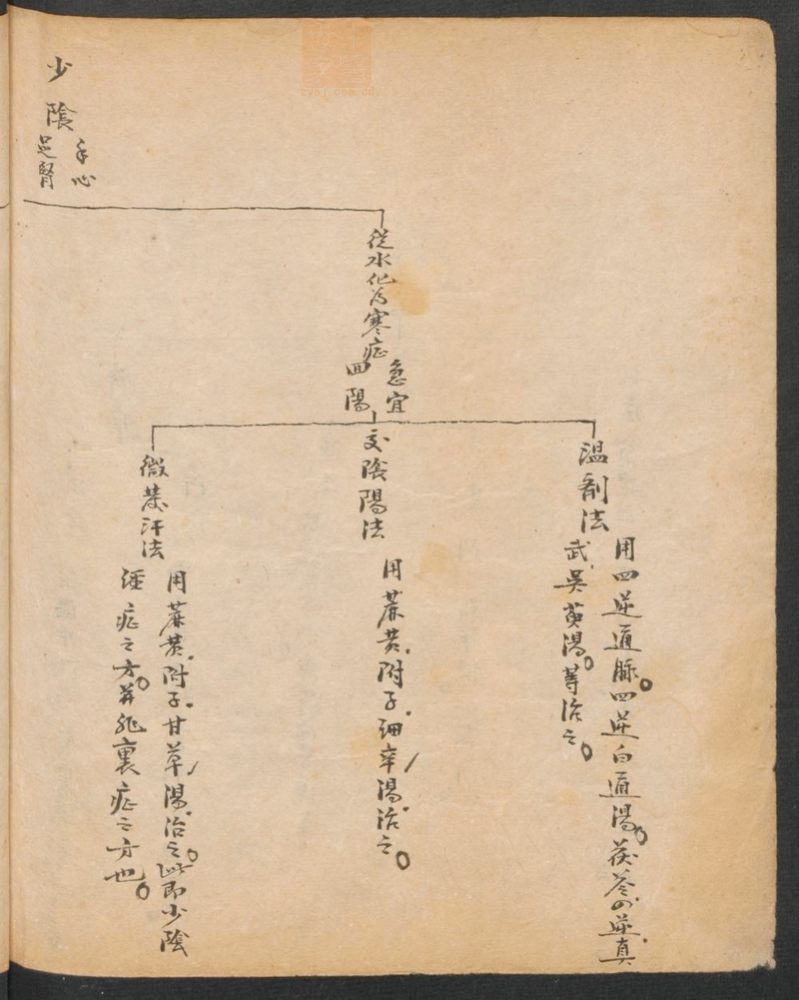 少陰
手心
足腎
從水化为寒症
急宜
回陽
温剤法
用四逆通脉。四逆白通湯。茯苓四逆真
武吳萸湯。等治之。
交陰陽法
用蔴黄附子細辛湯治之。
微發汗法
用蔴黄附子甘草湯治之。此即少陰
經症之方。并非裏症之方也。